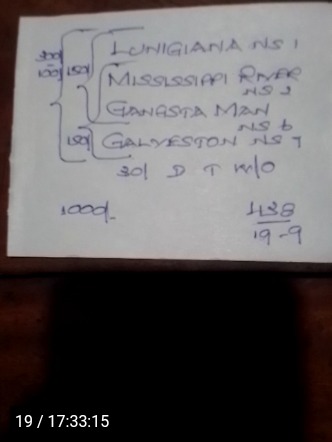 LUNIGIANA NS 1
300 150 MISSISSIPPI RIVER
100 NS 2
GANGSTA MAN
NS 6
150 GALVESTON NS 7
30/ D T W/O
1000/- 438
19-9
19 / 17:33:15